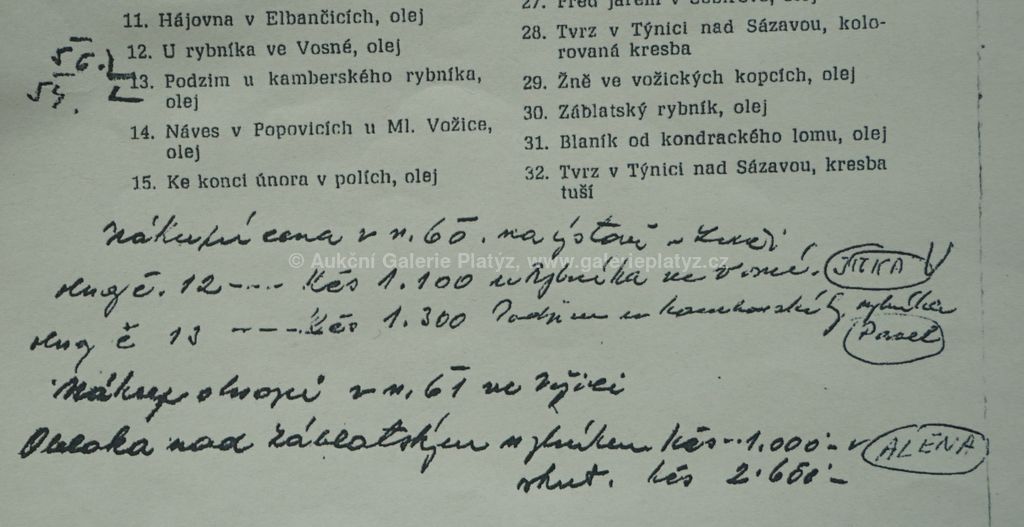 11. Hájovna v Elbančicích, olej
12. U rybníka ve Vosné, olej
13. Podzim u kamberského rybníka,
olej
14. Náves v Popovicích u Ml. Vožice,
olej
15. Ke konci února v polích, olej
28. Tvrz v Týnici nad Sázavou, kolo-
rovaná kresba
29. Žně ve vožických kopcích, olej
30. Záblatský rybník, olej
31. Blaník od kondrackého lomu, olej
32. Tvrz v Týnici nad Sázavou, kresba
tuší
Nákupní cena v r. 60. na
© Aukční Galerie Platýz, www.galerieplatyz.cz
č. 12 ---- Kčs 1.100 u Rybníka ve Vosné. JITKA
č 13 ---- Kčs 1.300 Podzim u kamberský rybníka
Pavel
Nákup v r. 61 ve
Obloha nad Záblatským rybníkem Kčs -- 1.000.- ALENA
skut. Kčs 2.600.-